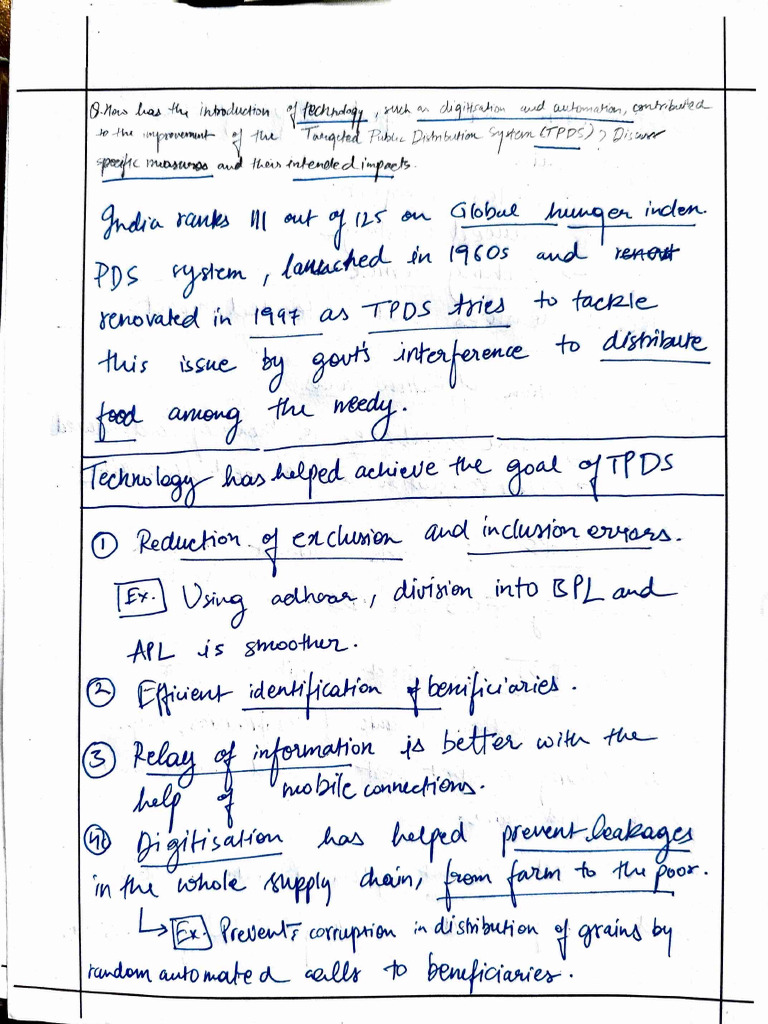 Q. How has the introduction of technology, such as digitisation and automation, contributed
to the improvement of the Targeted Public Distribution System (TPDS)? Discuss
specific measures and their intended impacts.
India ranks 111 out of 125 on Global hunger index.
PDS system, launched in 1960s and
renovated in 1997 as TPDS tries to tackle
this issue by govt's interference to distribute
food among the needy.
Technology has helped achieve the goal of TPDS
① Reduction of exclusion and inclusion errors.
Ex. Using adhaar, division into BPL and
APL is smoother.
② Efficient identification of benificiaries.
③ Relay of information is better with the
help of mobile connections.
④ Digitisation has helped prevent leakages
in the whole supply chain, from farm to the poor.
Ex. Prevents corruption in distribution of grains by
random automated calls to beneficiaries.